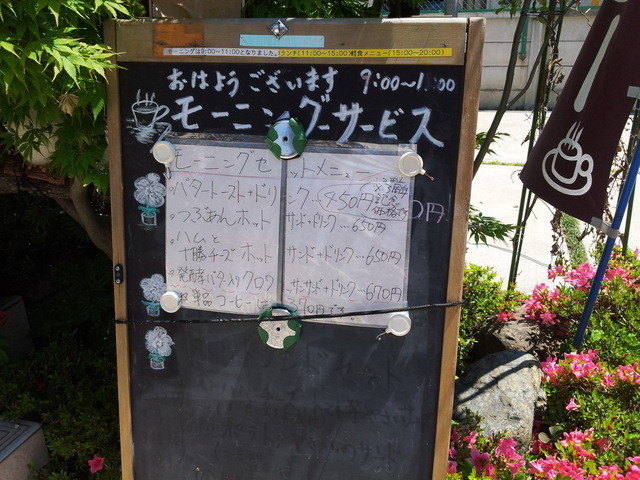 モーニングは9:00〜11:00となりました。ランチ(11:00〜15:00)軽食メニュー(15:00〜20:00)
おはようございます 9:00〜11:00
モーニングーサービス
モーニングセットメニュー
・バタートースト+ドリンク…450円
・つぶあんホットサンド+ドリンク…650円
・ハムと十勝チーズホットサンド+ドリンク…650円
・発酵バター入りクロワッサンサンド+ドリンク…670円
単品コーヒー
370円です